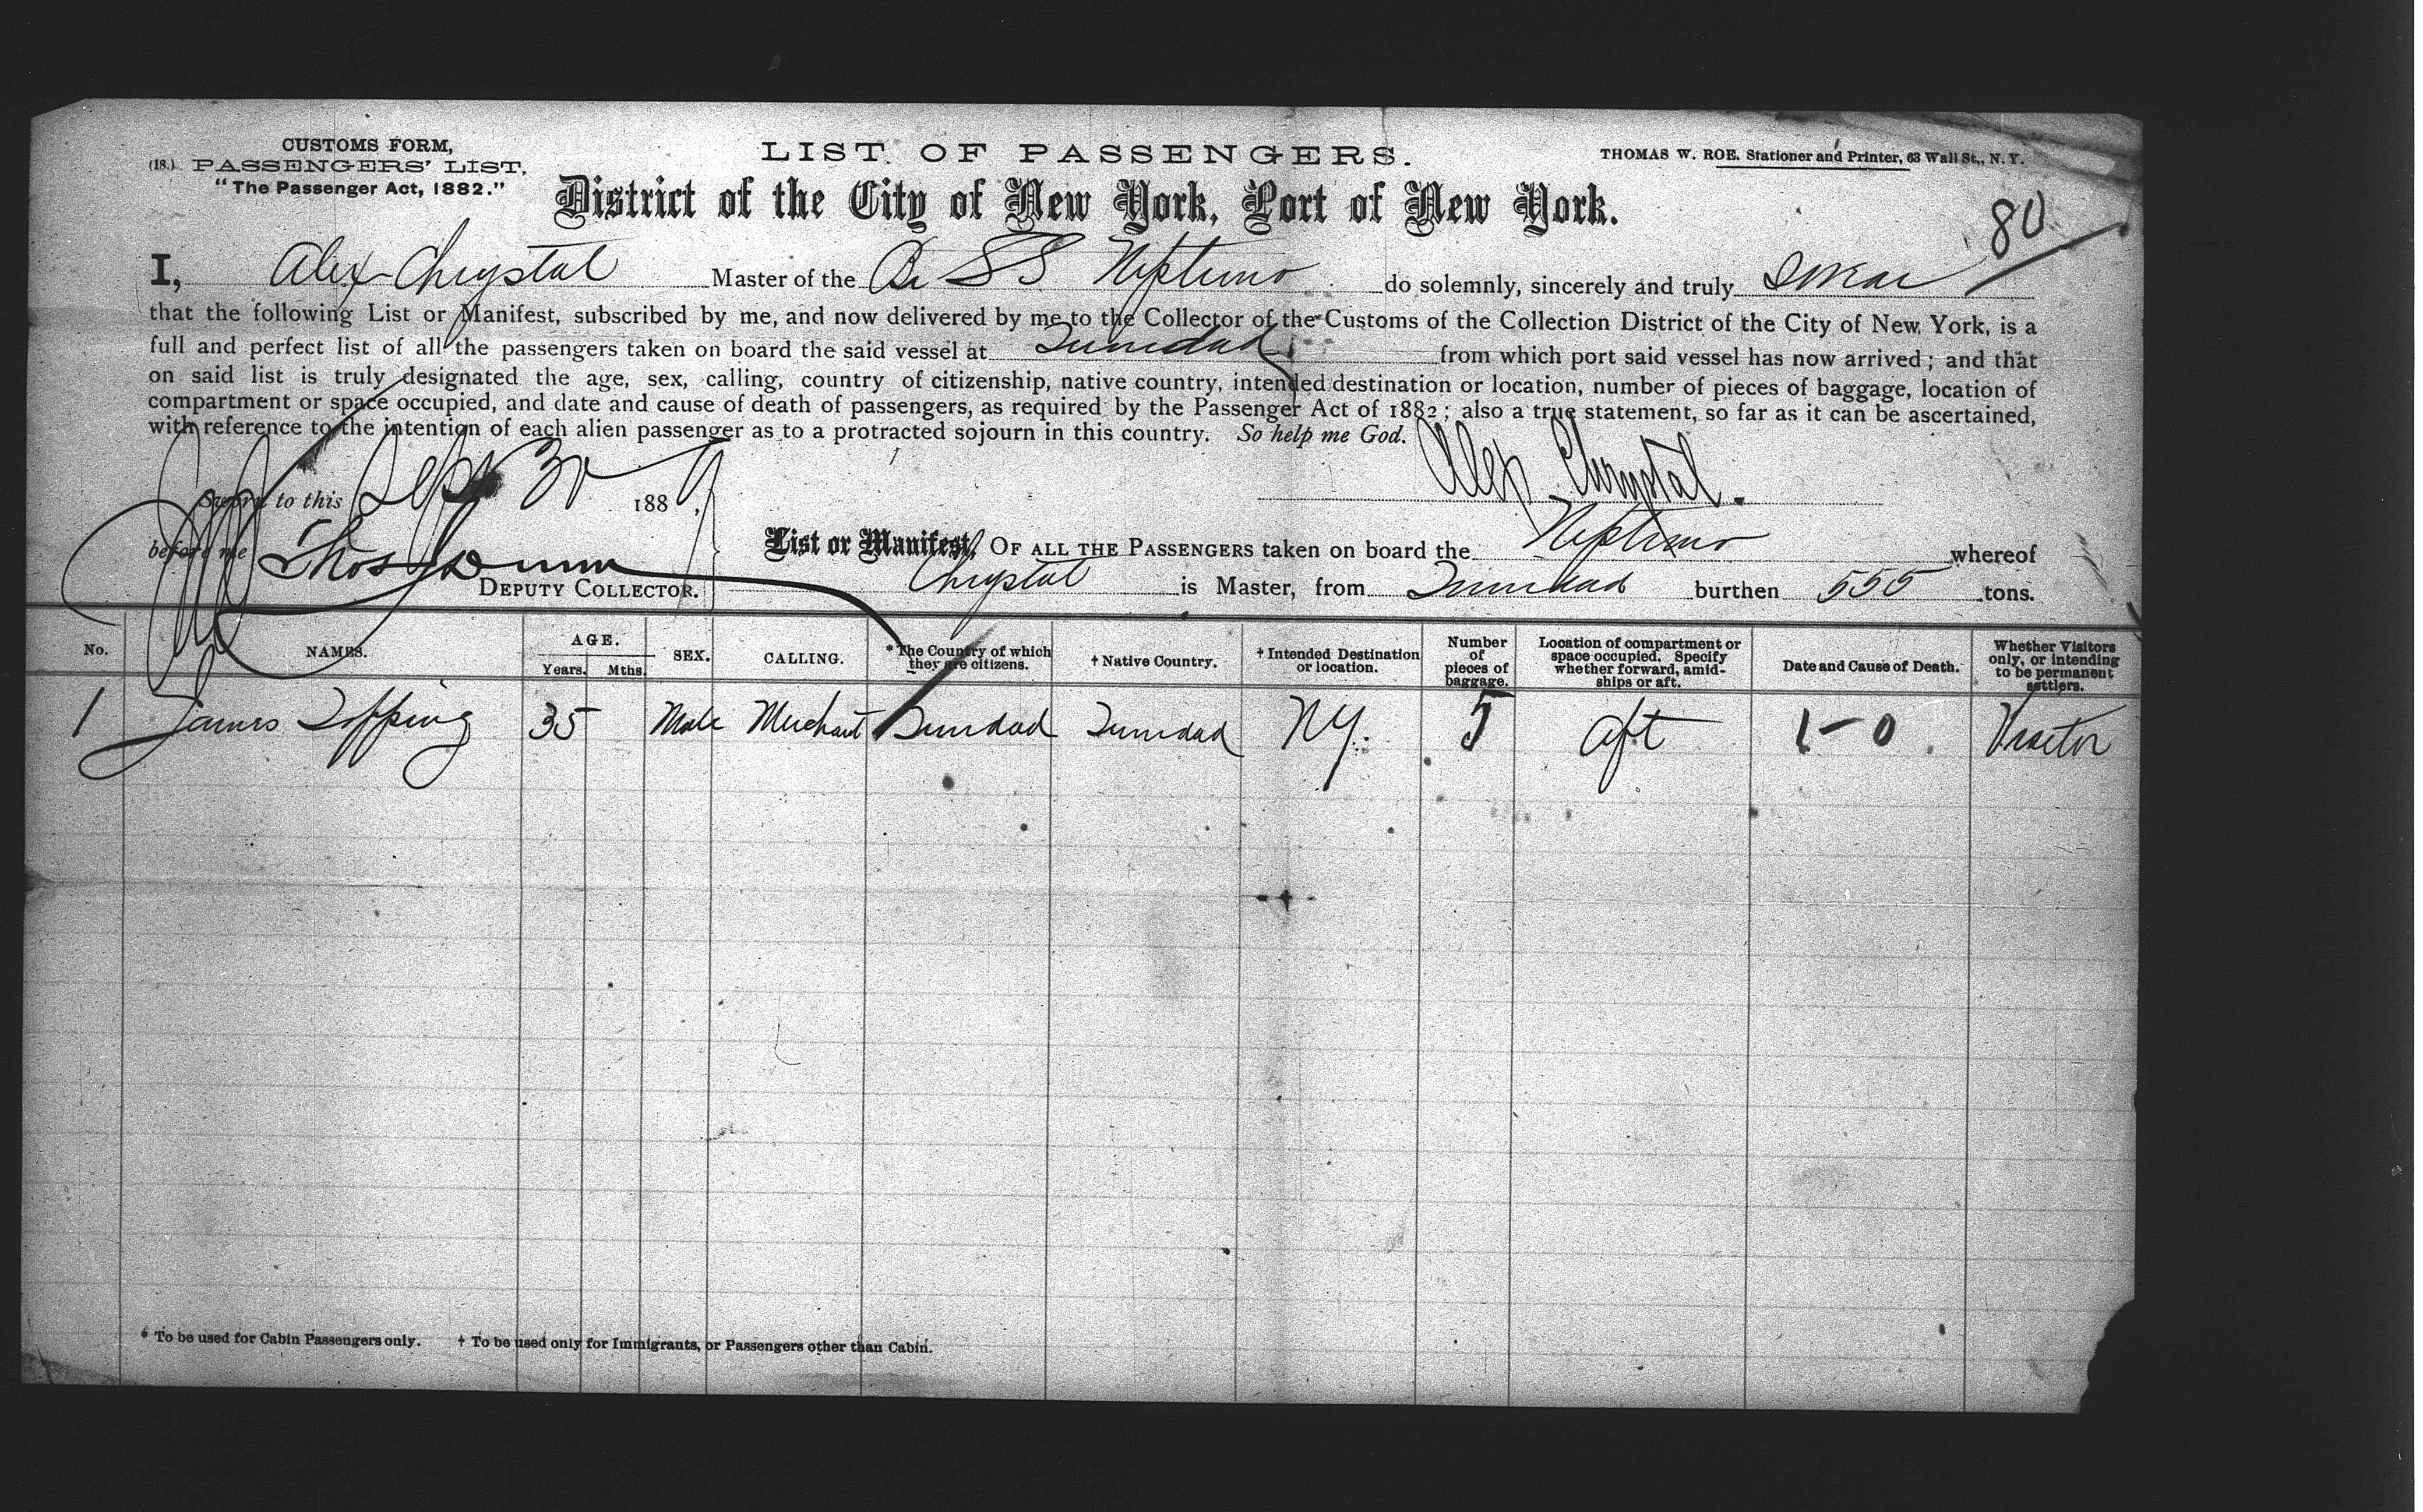 CUSTOMS FORM,
(18.) PASSENGERS' LIST,
"The Passenger Act, 1882."
LIST OF PASSENGERS.
THOMAS W. ROE, Stationer and Printer, 63 Wall St., N. Y.
District of the City of New York, Port of New York.
80
I, Alex Chrystal Master of the Br SS Neptuno do solemnly, sincerely and truly swear
that the following List or Manifest, subscribed by me, and now delivered by me to the Collector of the Customs of the Collection District of the City of New York, is a
full and perfect list of all the passengers taken on board the said vessel at Trinidad from which port said vessel has now arrived; and that
on said list is truly designated the age, sex, calling, country of citizenship, native country, intended destination or location, number of pieces of baggage, location of
compartment or space occupied, and date and cause of death of passengers, as required by the Passenger Act of 1882; also a true statement, so far as it can be ascertained,
with reference to the intention of each alien passenger as to a protracted sojourn in this country. So help me God.
Alex Chrystal.
Sworn to this Sept 30 1889,
before me Thos Dunn
DEPUTY COLLECTOR.
List or Manifest, OF ALL THE PASSENGERS taken on board the Neptuno whereof
Chrystal is Master, from Trinidad burthen 555 tons.
No. NAMES. AGE. Years. Mths. SEX. CALLING. * The Country of which they are citizens. † Native Country. † Intended Destination or location. Number of pieces of baggage. Location of compartment or space occupied. Specify whether forward, amidships or aft. Date and Cause of Death. Whether Visitors only, or intending to be permanent settlers.
1 James Topping 35 Male Merchant Trinidad Trinidad NY. 5 aft 1-0 Visitor
* To be used for Cabin Passengers only. † To be used only for Immigrants, or Passengers other than Cabin.